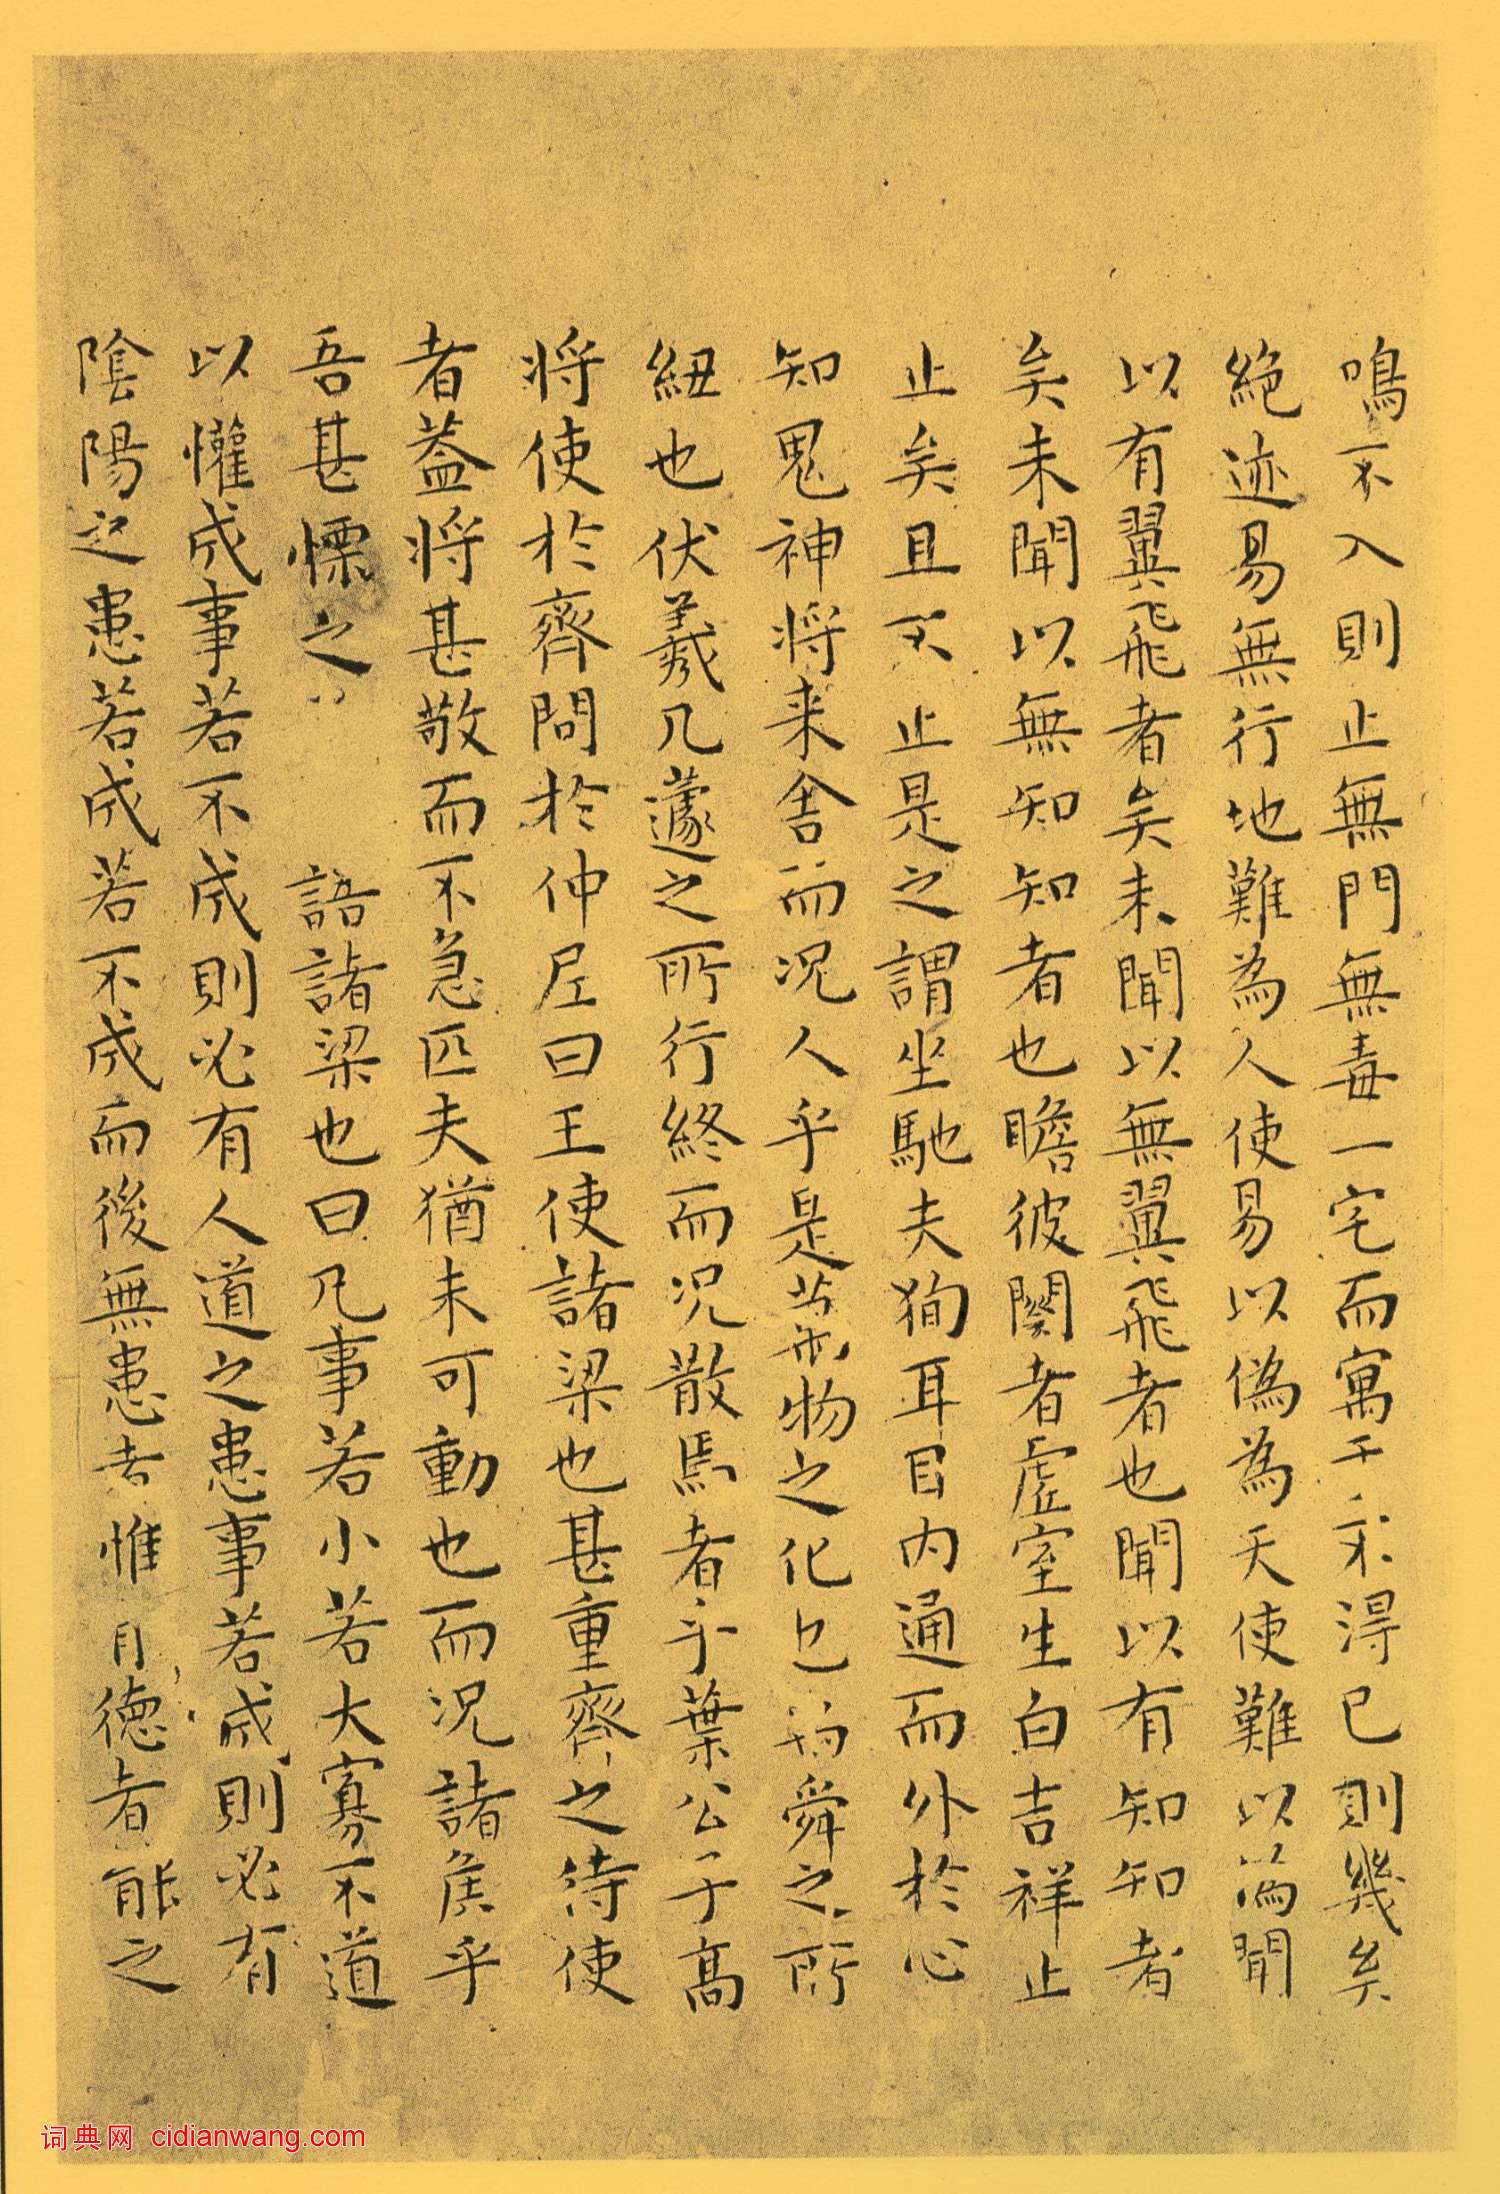 鳴不入則止無門無毒一宅而寓于不得已則幾矣
絕迹易無行地難為人使易以偽為天使難以偽聞
以有翼飛者矣未聞以無翼飛者也聞以有知知者
矣未聞以無知知者也瞻彼闋者虛室生白吉祥止
止矣且不止是之謂坐馳夫狥耳目內通而外於心
知鬼神将来舍而况人乎是萬物之化也禹舜之所
紐也伏羲几蘧之所行終而况散焉者乎葉公子高
将使於齊問於仲尼曰王使諸梁也甚重齊之待使
者蓋将甚敬而不急匹夫猶未可動也而况諸侯乎
吾甚慄之 語諸梁也曰凡事若小若大寡不道
以懽成事若不成則必有人道之患事若成則必有
陰陽之患若成若不成而後無患者惟有德者能之
词典网 cidianwang.com